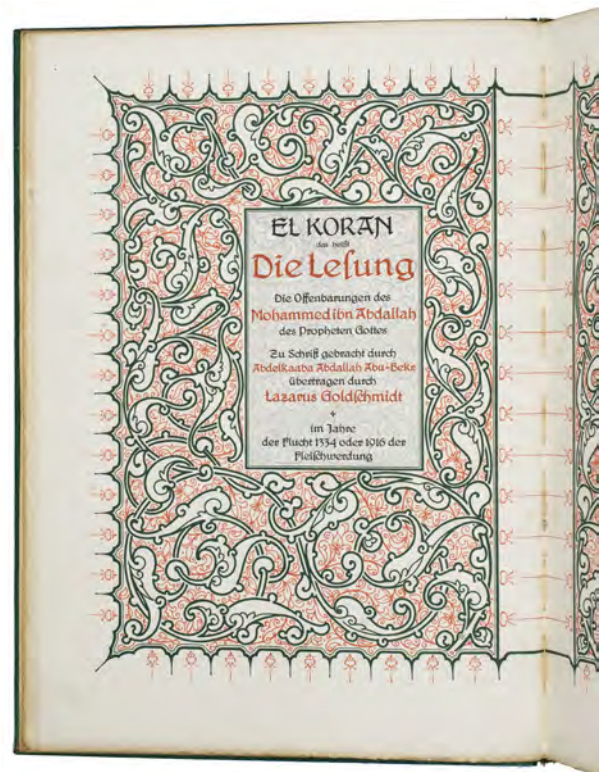 EL KORAN
das heißt
Die Leſung
Die Offenbarungen des
Mohammed ibn Abdallah
des Propheten Gottes
Zu Schrift gebracht durch
Abdelkaaba Abdallah Abu-Bekr
übertragen durch
Lazarus Goldſchmidt
im Jahre
der Flucht 1334 oder 1916 der
Fleiſchwerdung